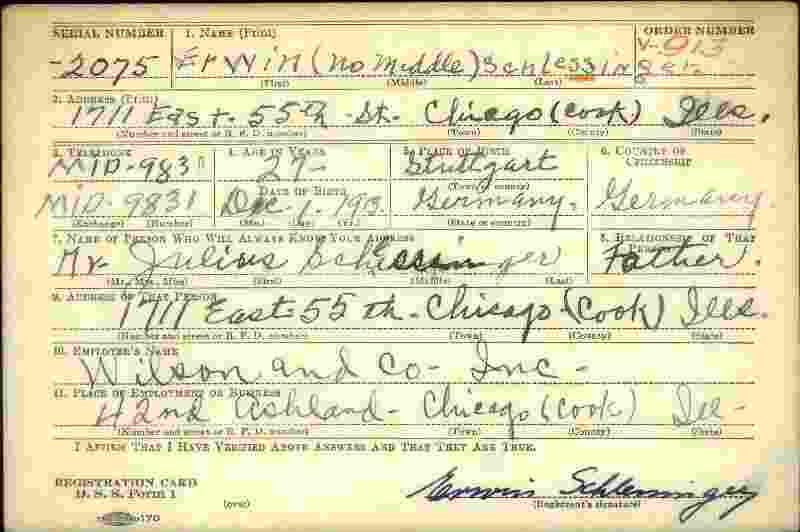 SERIAL NUMBER 1. NAME (Print) ORDER NUMBER
-2075 Erwin (no middle) Schlessinger. V-
(First) (Middle) (Last)
2. ADDRESS (Print)
1711 East 55th St. Chicago (Cook) Ills.
(Number and street or R. F. D. number) (Town) (County) (State)
3. TELEPHONE 4. AGE IN YEARS 5. PLACE OF BIRTH 6. COUNTRY OF CITIZENSHIP
MID-983 27- Stuttgart
DATE OF BIRTH (Town or county)
MID-9831 Dec. Germany. Germany.
(Exchange) (Number) (Mo.) (Day) (Yr.) (State or country)
7. NAME OF PERSON WHO WILL ALWAYS KNOW YOUR ADDRESS 8. RELATIONSHIP OF THAT PERSON
Mr Julius Father.
(Mr., Mrs., Miss) (First) (Middle) (Last)
9. ADDRESS OF THAT PERSON
1711 East 55th. Chicago (Cook) Ills.
(Number and street or R. F. D. number) (Town) (County) (State)
10. EMPLOYER'S NAME
Wilson and Co- Inc-
11. PLACE OF EMPLOYMENT OR BUSINESS
42nd Ashland- Chicago (Cook) Ill-
(Number and street or R. F. D. number) (Town) (County) (State)
I AFFIRM THAT I HAVE VERIFIED ABOVE ANSWERS AND THAT THEY ARE TRUE.
REGISTRATION CARD
D. S. S. Form 1 (over) Erwin Schlessinger
(Registrant's signature)